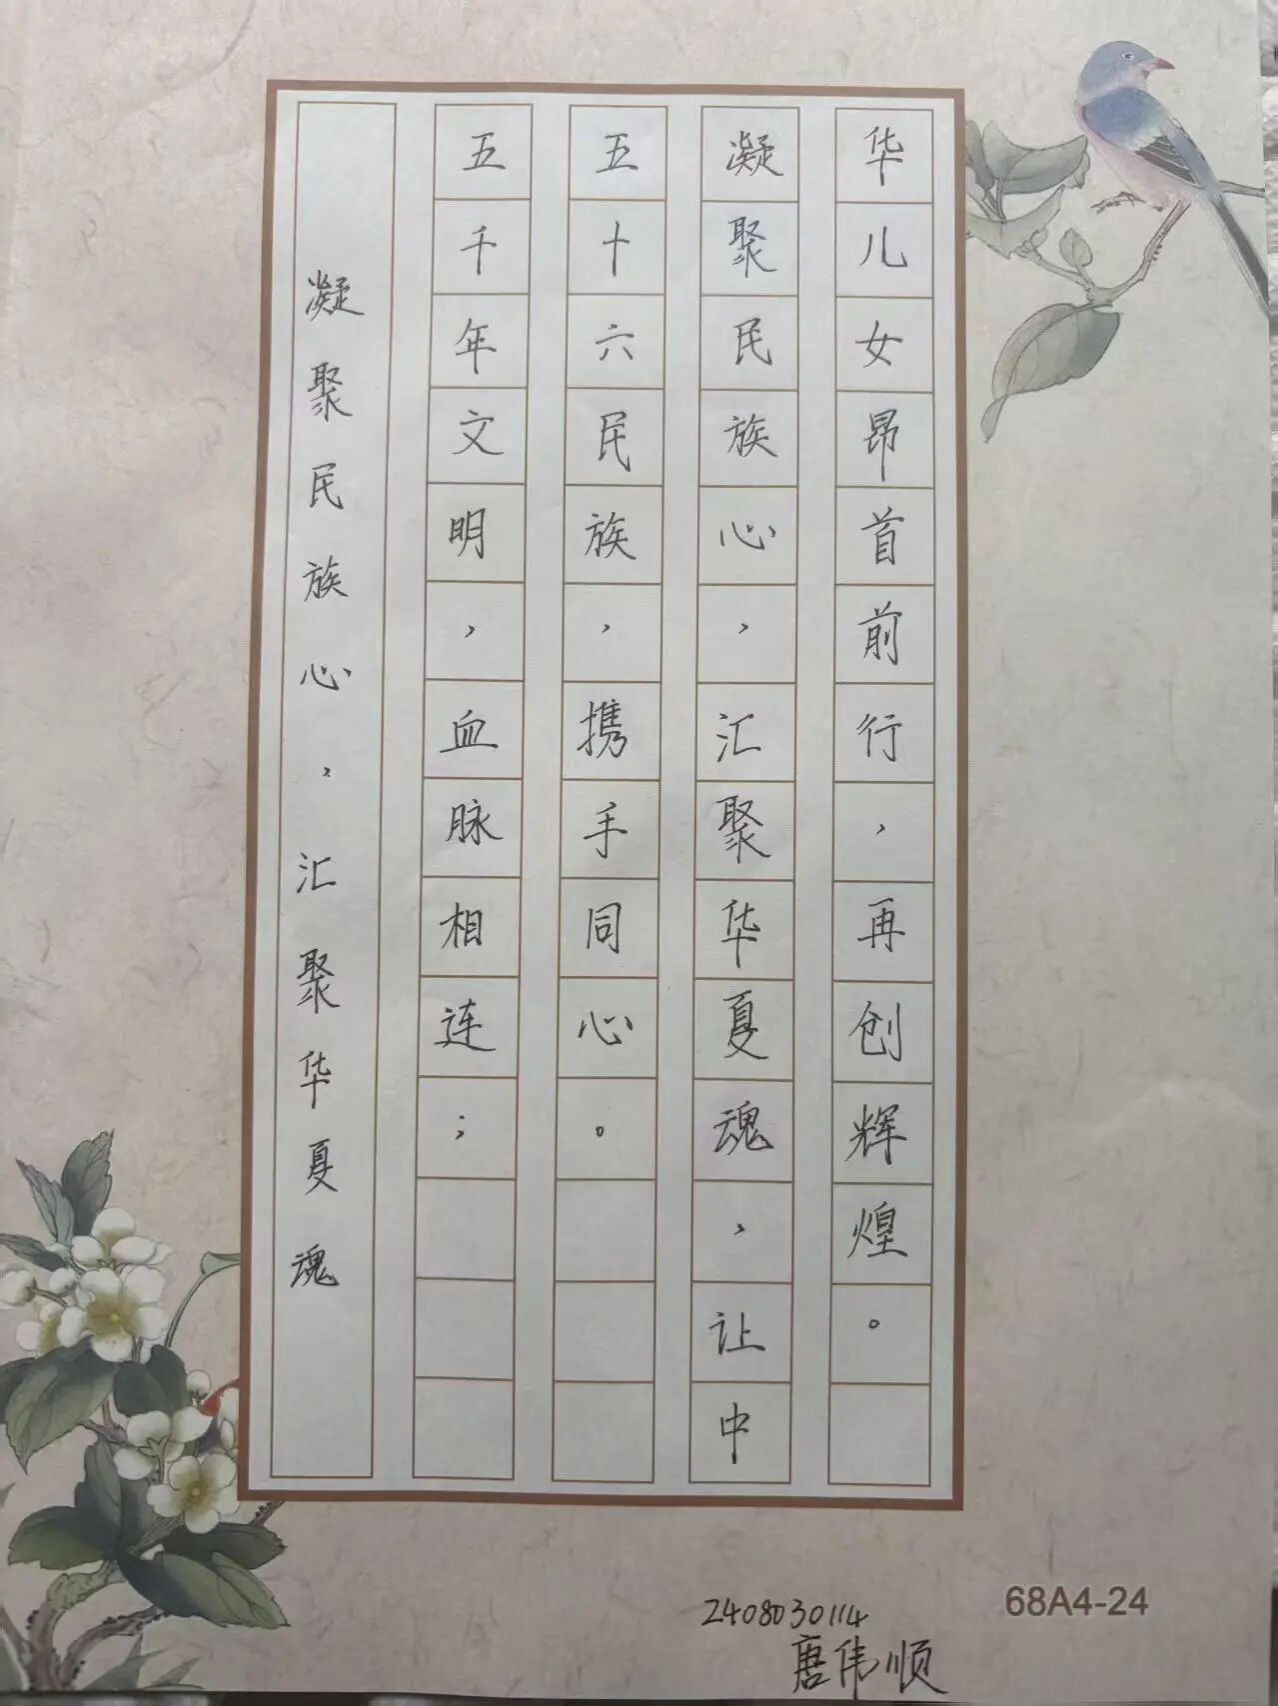 凝聚民族心，汇聚华夏魂
五千年文明，血脉相连；
五十六民族，携手同心。
凝聚民族心，汇聚华夏魂，让中
华儿女昂首前行，再创辉煌。
68A4-24
2408030114
唐伟顺